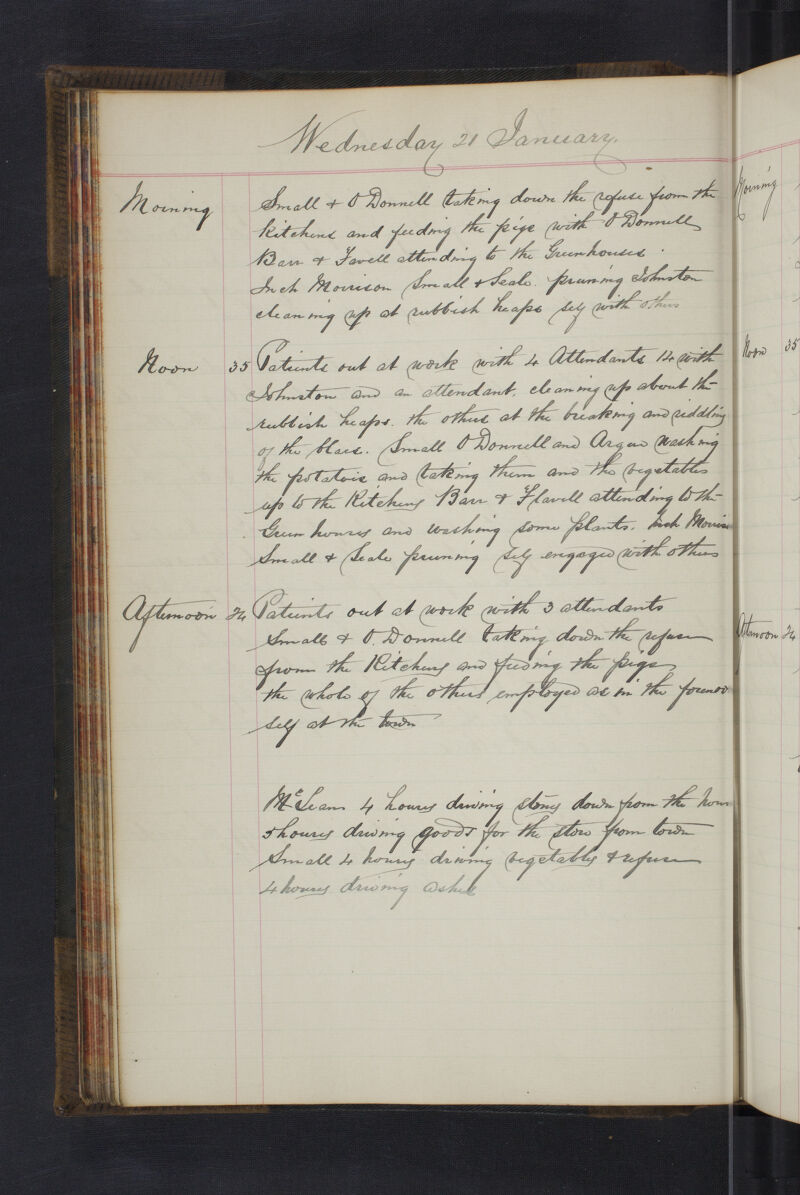 Wednesday 21 January.
Morning Small & O Donnell taking down the refuse from the
Kitchens and feeding the pigs with O Donnell
Barr & Favell attending to the Greenhouses.
Inch Morrison Small & Seale. pruning Johnston
cleaning up at rubbish heaps self with others
Noon 35 Patients out at work with 4 Attendants 14 with
Johnston and an attendant. cleaning up about the
rubbish heaps. the others at the breaking and riddling
of the blaes. Small O Donnell and Argue washing
the potatois and taking them and the vegetables
up to the Kitchens Barr & Flavell attending to the
Green houses and washing some plants. Inch Morris
Small & Seale pruning self engaged with others
Afternoon 34 Patients out at work with 3 attendants
Small & O. Donnell taking down the refuse
from the Kitchens and feeding the pigs
the whole of the others employed as in the forenoo
self at the town
McLean 4 hours driving stones down from the
5 hours driving goods for the store from town
Small 4 hours driving vegetables & refuse
4 hours driving ashes
Morning
Noon 35
Afternoon 34